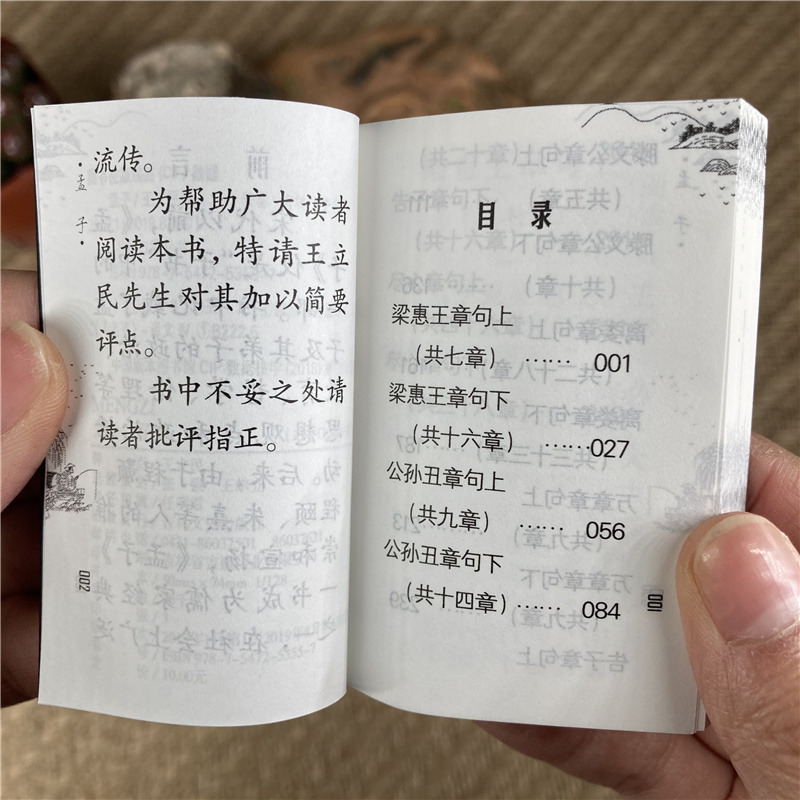 ·孟子·
流传。
为帮助广大读者
阅读本书，特请王立
民先生对其加以简要
评点。
书中不妥之处请
读者批评指正。
002
目录
梁惠王章句上
（共七章） …… 001
梁惠王章句下
（共十六章） ……027
公孙丑章句上
（共九章） …… 056
公孙丑章句下
（共十四章）…… 084
001